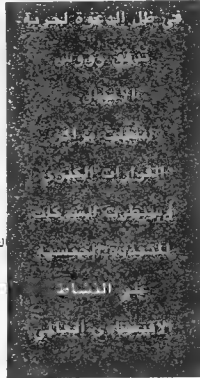 في ظل الدعوة لحرية
رؤوس
الأفعال
انتقلت مراكز
القرارات الكبرى
وسيطرت الشركات
المتعددة الجنسية
على النشاط
الاقتصادى العالمي